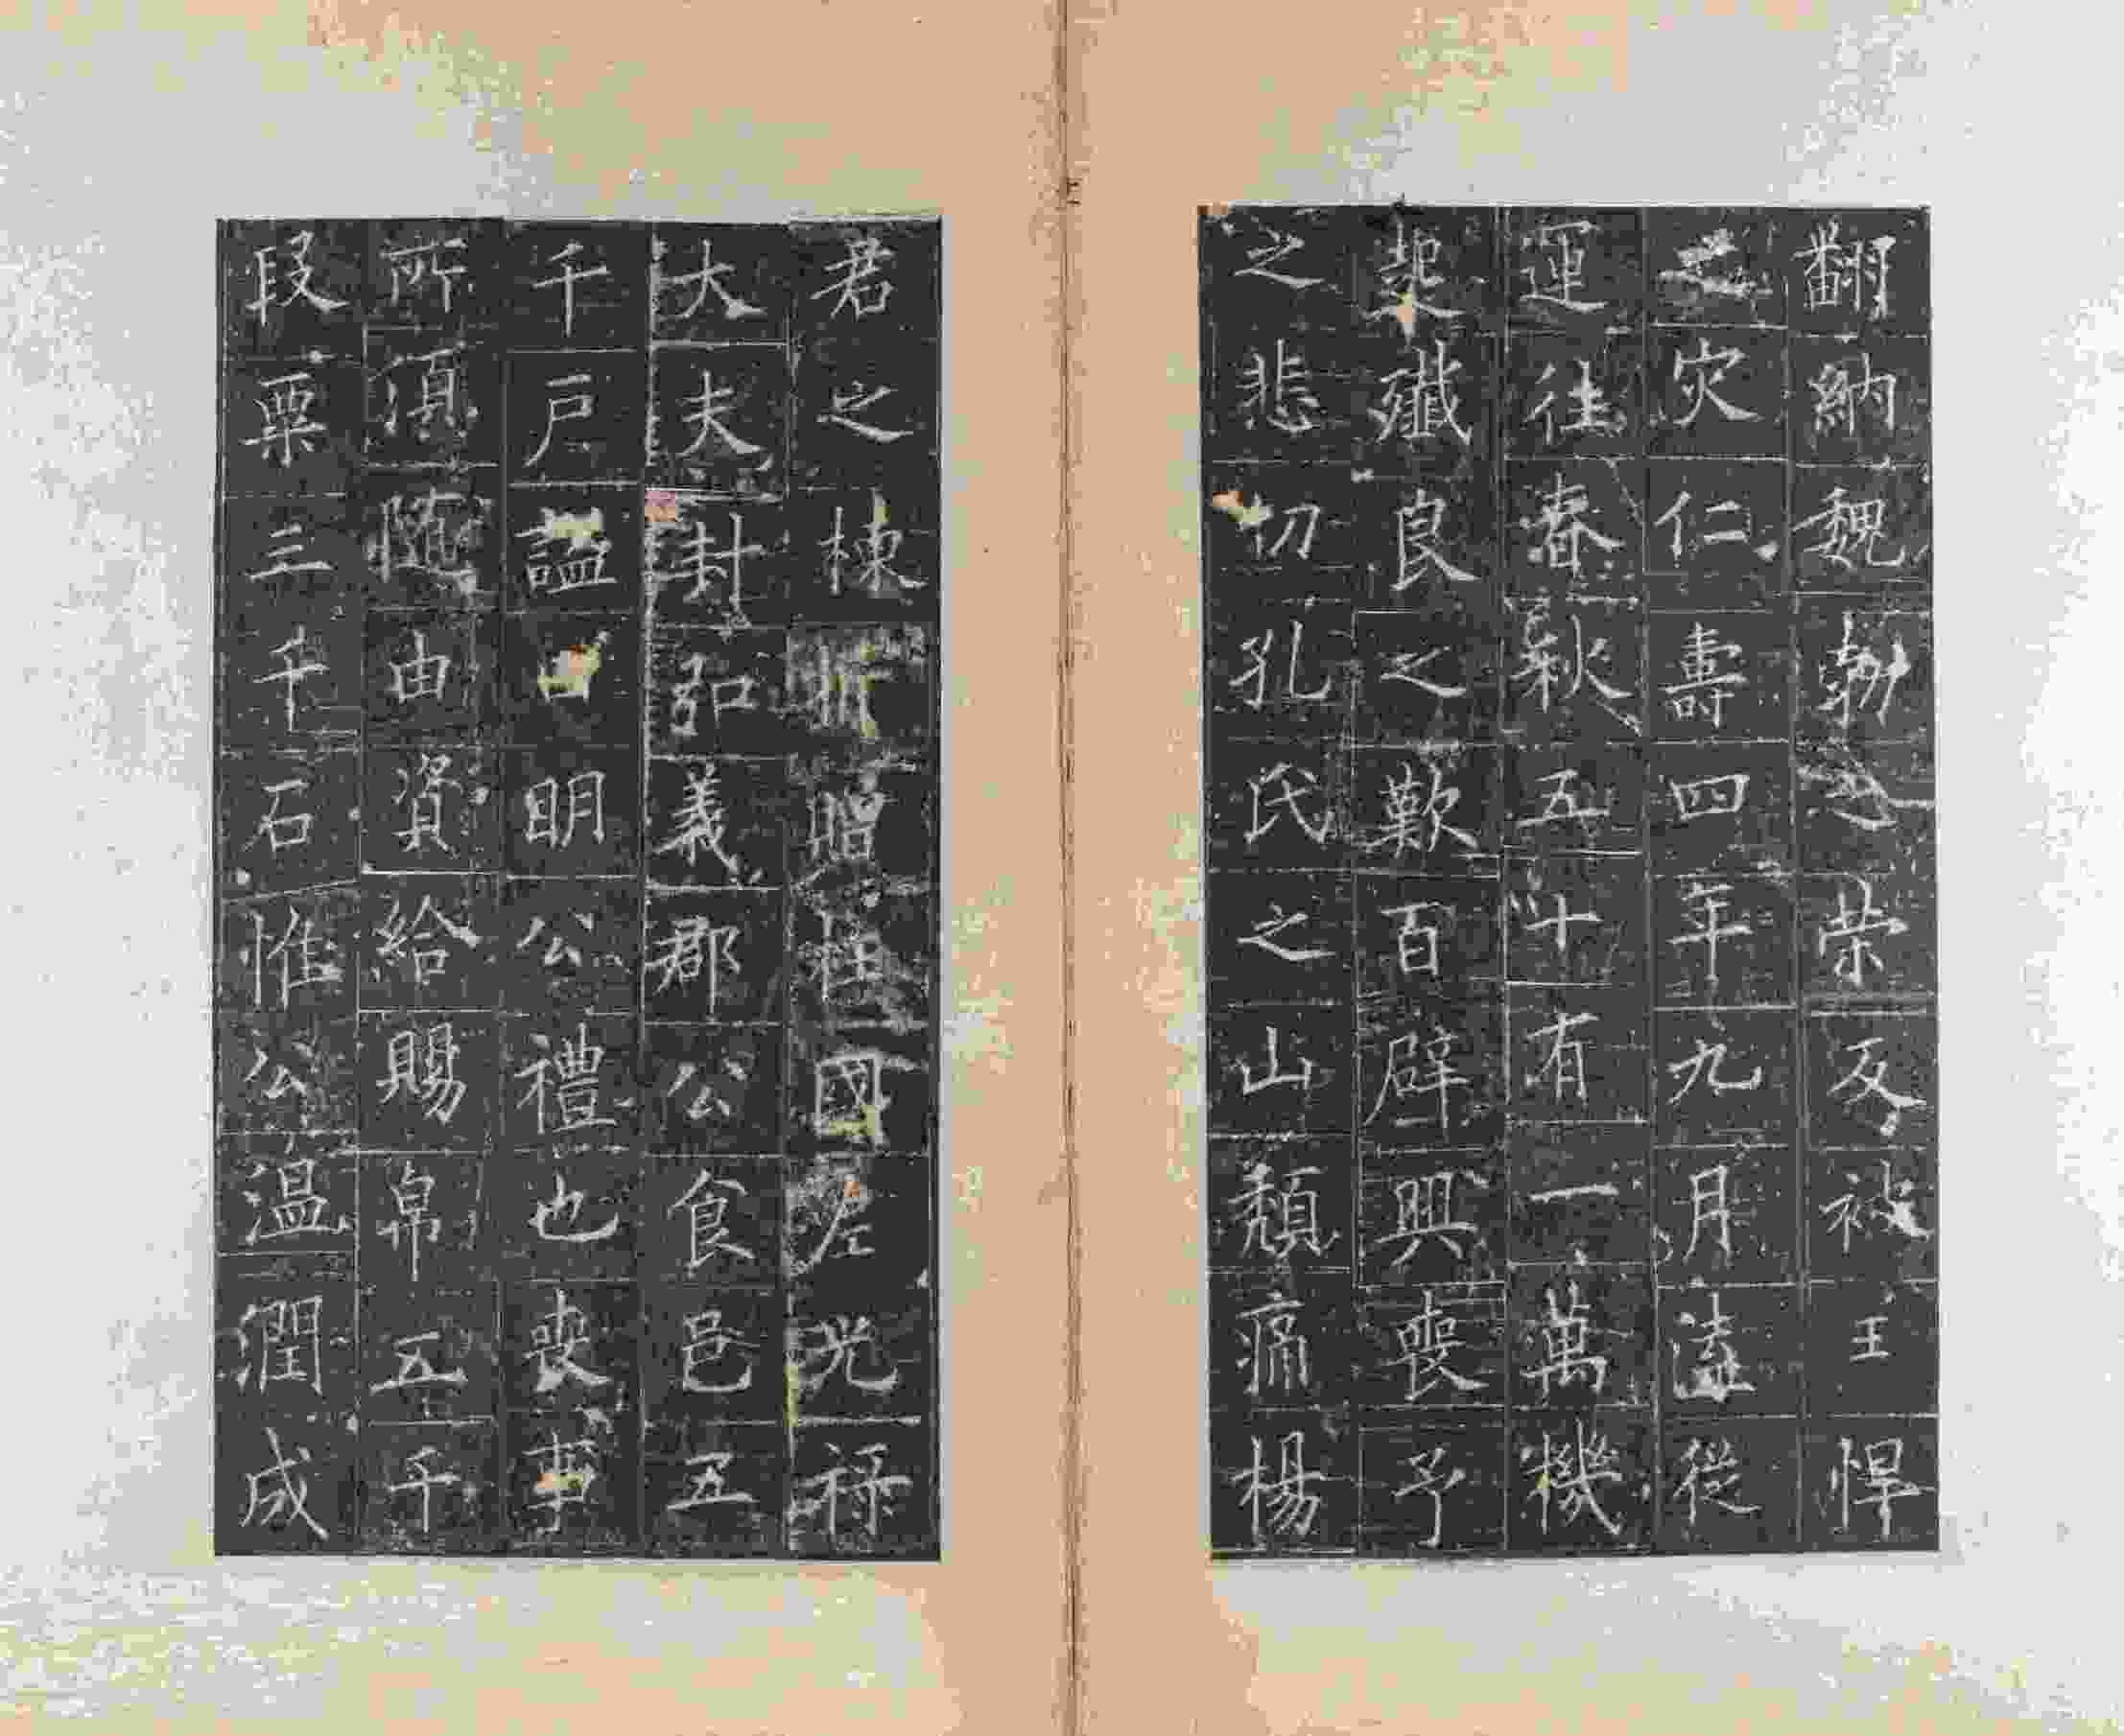 翻納魏勃之榮反被王悍
之灾仁壽四年九月遘從
運往春秋五十有一萬機
起殲良之歎百辟興喪予
之悲切孔氏之山頹痛楊
君之棟折贈柱國左光祿
大夫封弘義郡公食邑五
千戶諡曰明公禮也喪事
所須隨由資給賜帛五千
段粟三千石惟公溫潤成